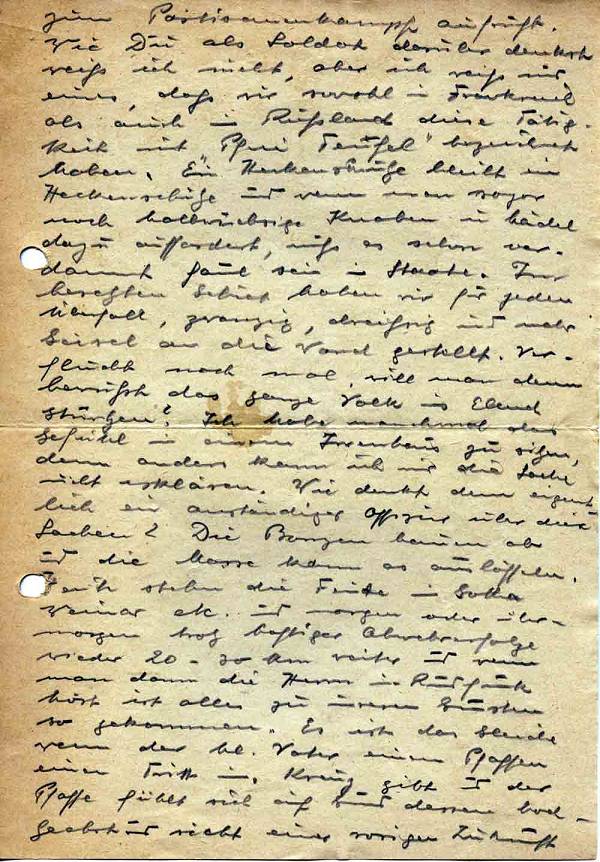 zum Partisanenkampf aufruft.
Wie Du als Soldat darüber denkst
weiß ich nicht, aber ich weiß nur
eines, daß wir sowohl in Frankreich
als auch in Rußland diese Tätig-
keit mit "Pfui Teufel" bezeichnet
haben. Ein Heckenschütze bleibt ein
Heckenschütze und wenn man sogar
noch halbwüchsige Knaben u. Mädel
dazu auffordert, muß es schon ver-
dammt faul sein im Staate. Im
besetzten Gebiet haben wir für jeden
Überfall, zwanzig, dreißig und mehr
Geisel an die Wand gestellt. Ver-
flucht noch mal, will man denn
bewußt das ganze Volk ins Elend
stürzen? Ich habe manchmal das
Gefühl in einem Irrenhaus zu sitzen,
denn anders kann ich mir die Sache
nicht erklären. Wie denkt denn eigent-
lich ein anständiger Offizier über diese
Sachen? Die Bonzen hauen ab
und die Masse kann es auslöffeln.
Heute stehen die Feinde in Gotha
Weimar etc. und morgen oder über-
morgen trotz heftiger Abwehrerfolge
wieder 20 - 30 km weiter und wenn
man dann die Herrn im Rundfunk
hört ist alles zu unseren Gunsten
so gekommen. Es ist das Gleiche
wenn der hl. Vater einem Pfaffen
einen Tritt ins Kreuz gibt und der
Pfaffe fühlt sich auf Grund dessen hoch-
geehrt und sieht einer rosigen Zukunft